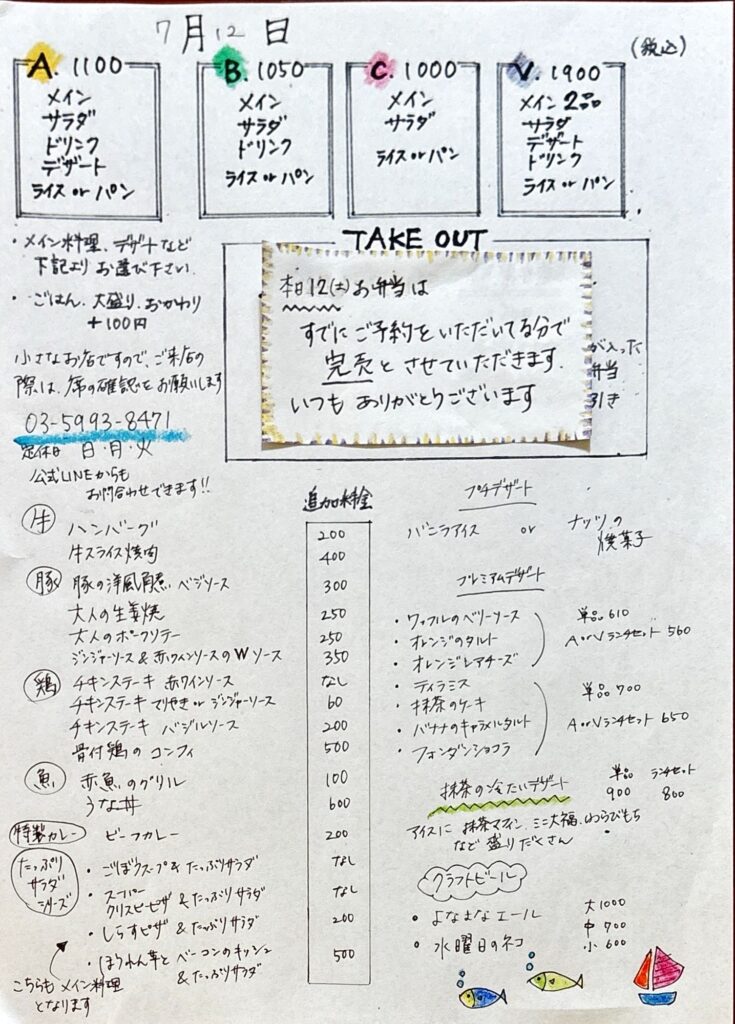 7月12日
(税込)
A. 1100
メイン
サラダ
ドリンク
デザート
ライス or パン
B. 1050
メイン
サラダ
ドリンク
ライス or パン
C. 1000
メイン
サラダ
ライス or パン
V. 1900
メイン 2品
サラダ
デザート
ドリンク
ライス or パン
・メイン料理、デザートなど
下記より お選び下さい
・ごはん、大盛り、おかわり
+100円
小さなお店ですので、ご来店の
際は、席の確認をお願いします
03-5993-8471
定休日 日・月・火
公式LINEからも
お問合わせできます!!
TAKE OUT
本日12(土)お弁当は
すでにご予約をいただいてる分で
完売とさせていただきます.
いつもありがとうございます
が入った
弁当
引き
追加料金
牛
ハンバーグ 200
牛スライス焼肉 400
豚
豚の洋風角煮 ベジソース 300
大人の生姜焼 250
大人のポークソテー 250
ジンジャーソース&赤ワインソースのWソース 350
鶏
チキンステーキ 赤ワインソース なし
チキンステーキ てりやき or ジンジャーソース 60
チキンステーキ バジルソース 200
骨付鶏のコンフィ 500
魚
赤魚のグリル 100
うな丼 600
特製カレー
ビーフカレー 200
たっぷり
サラダ
シリーズ
・ごぼうスープ&たっぷりサラダ なし
・スーパー
クリスピーピザ&たっぷりサラダ なし
・しらすピザ&たっぷりサラダ 200
・ほうれん草とベーコンのキッシュ
&たっぷりサラダ 500
こちらもメイン料理
となります
プチデザート
バニラアイス or ナッツの
焼菓子
プレミアムデザート
・ワッフルのベリーソース
・オレンジのタルト
・オレンジレアチーズ
単品 610
A or Vランチセット 560
・ティラミス
・抹茶のケーキ
・バナナのキャラメルタルト
・フォンダンショコラ
単品 700
A or Vランチセット 650
抹茶の冷たいデザート
単品 ランチセット
900 800
アイスに 抹茶マフィン、ミニ大福、わらびもち
など 盛りだくさん
クラフトビール
・よなよなエール
・水曜日のネコ
大1000
中 700
小 600